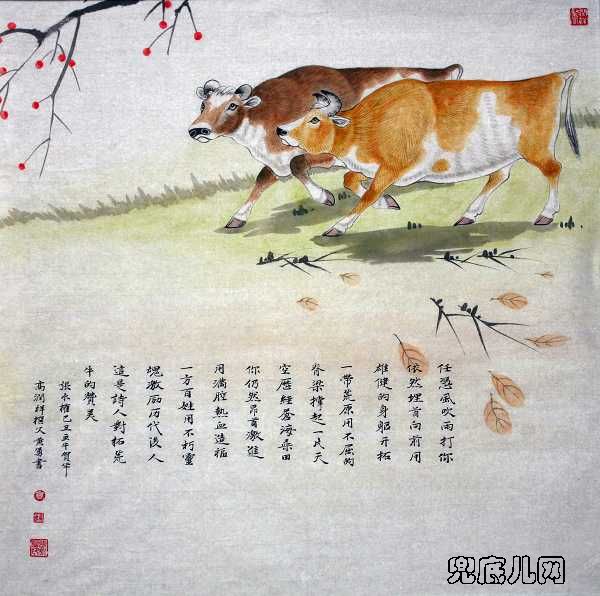 任憑風吹雨打你
依然埋首向前用
雄健的身軀开拓
一带荒原用不屈的
脊梁撑起一片天
空歷經蒼海桑田
你仍然昂首激進
用滿腔熱血造福
一方百姓用不朽靈
魂激励历代後人
這是詩人對拓荒
牛的赞美
張永權己丑年賀年
高潤祥撰文黄昌書
兜底儿网